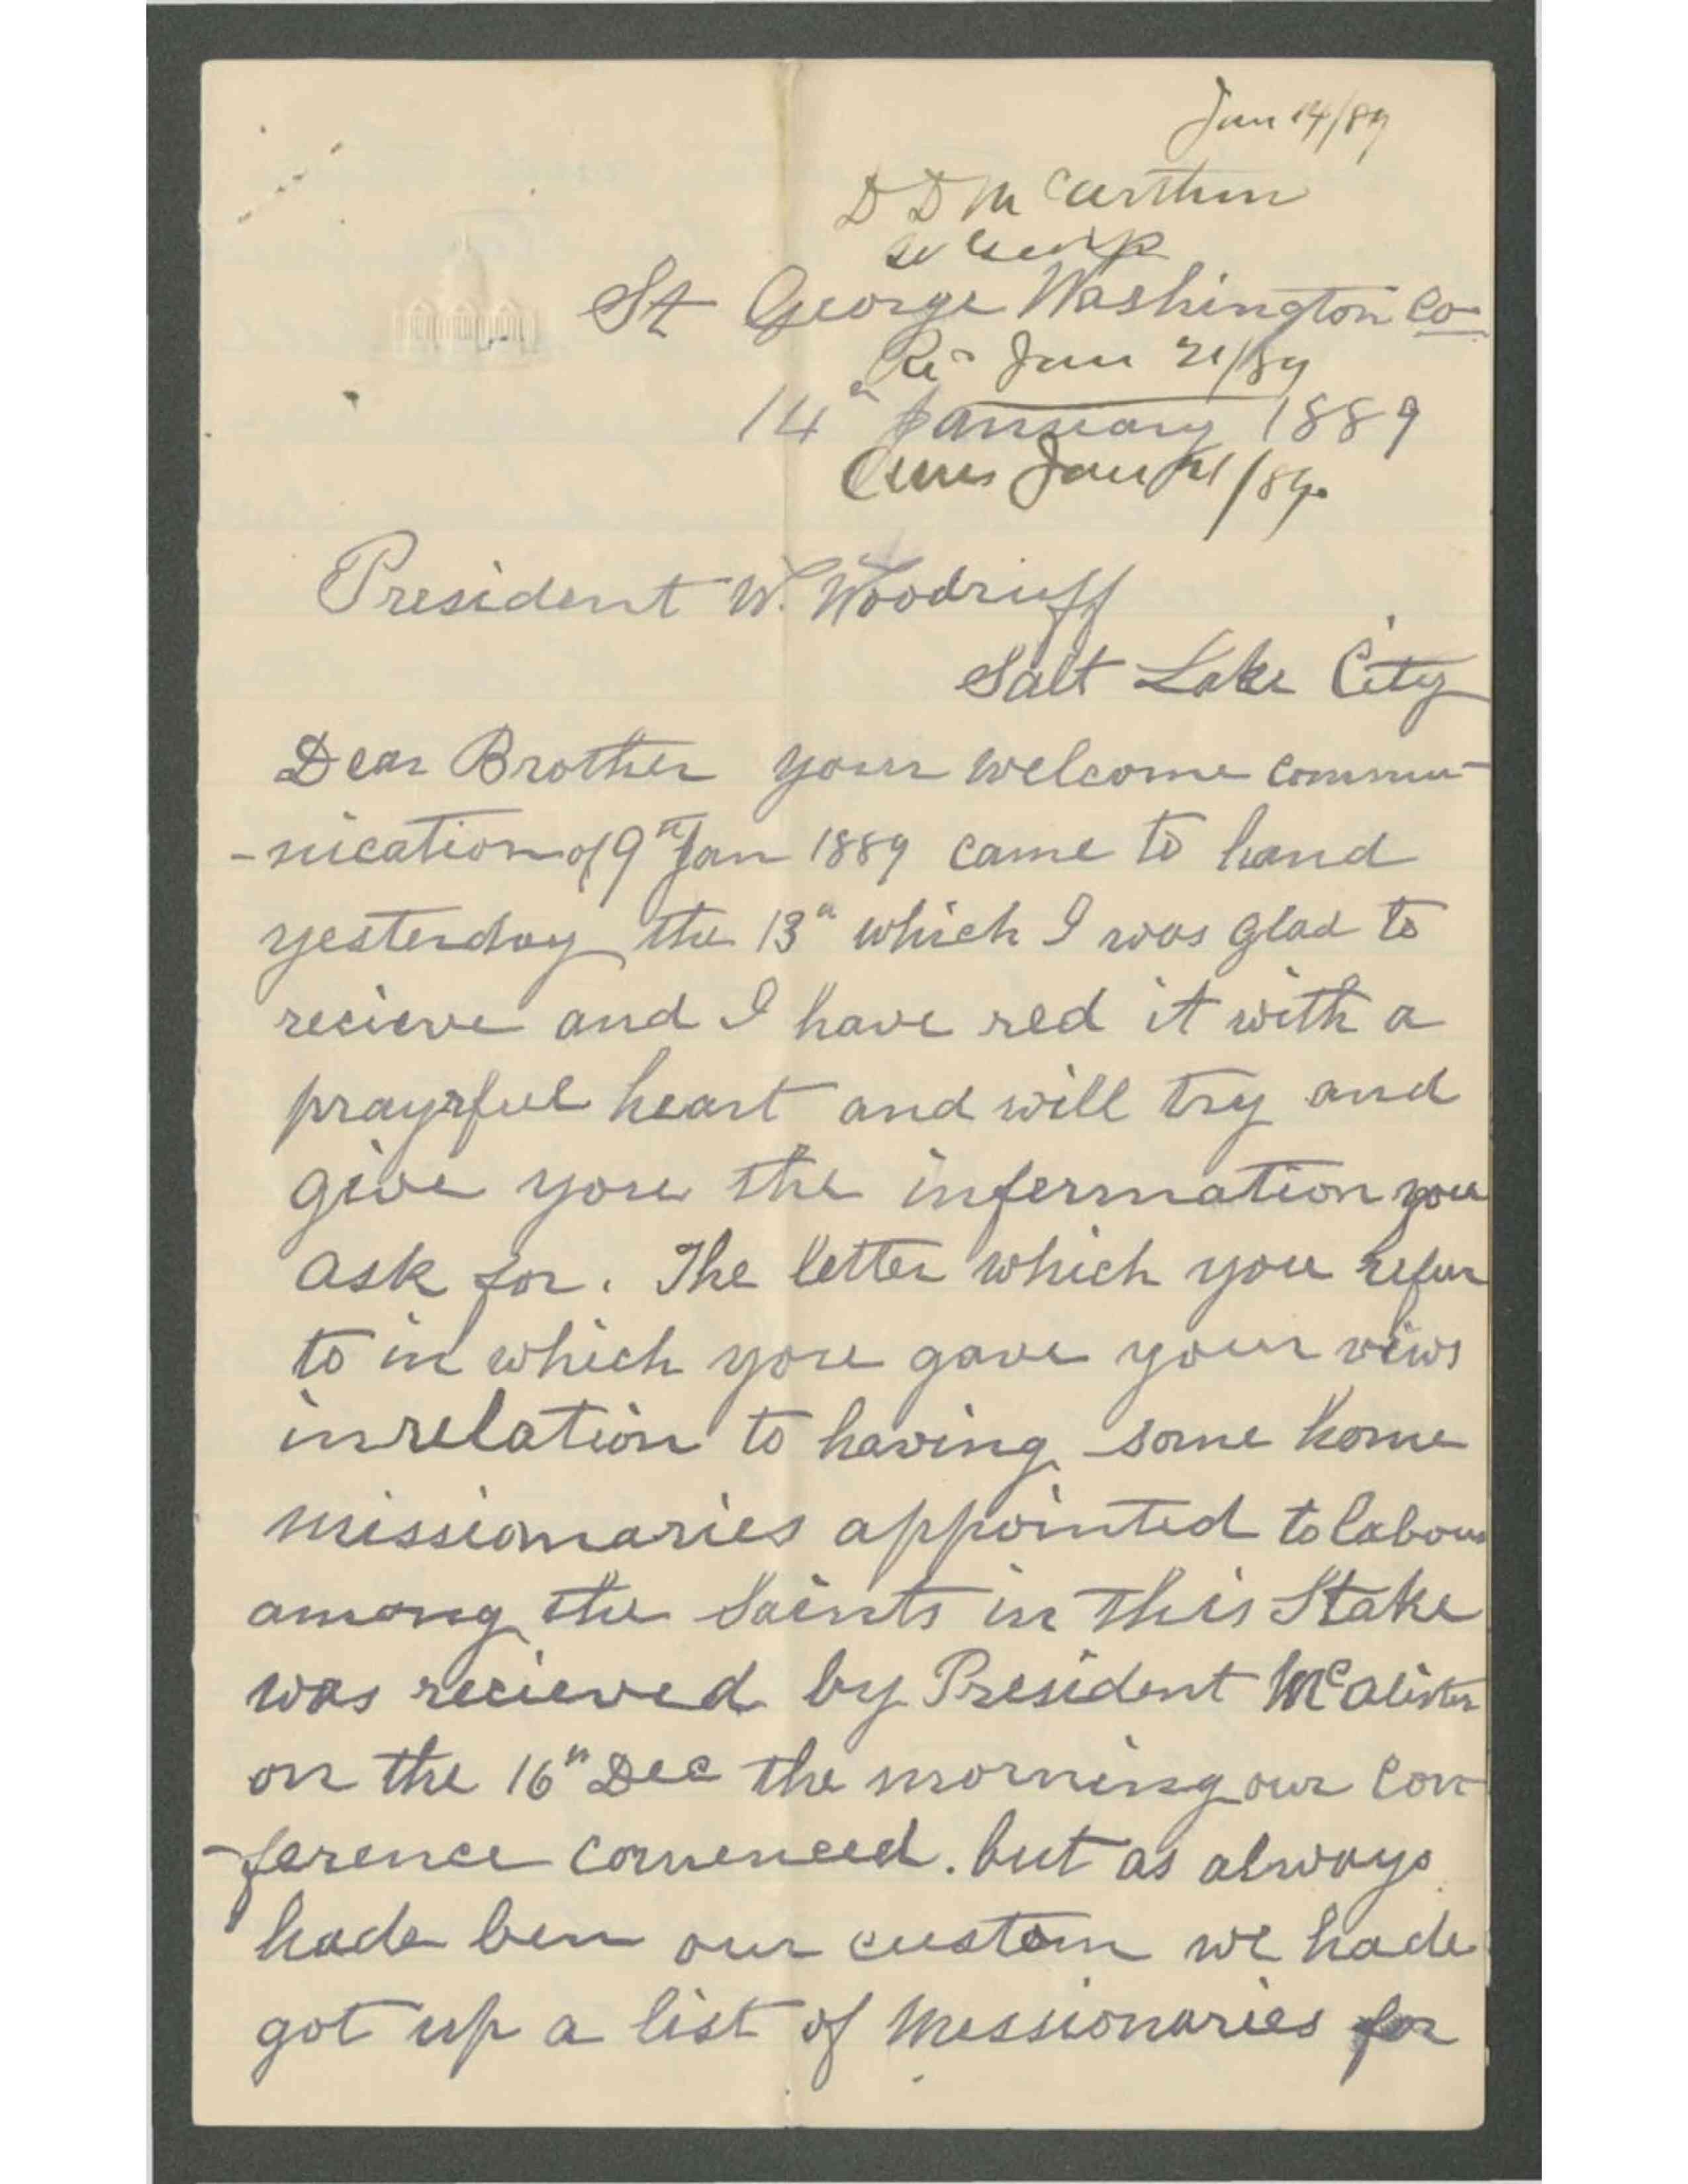 Jan 14/89
D D McArthur
St George Washington Co
Re- Jan 21/89
14" January 1889
Ans Jan 21/89.
President W. Woodruff
Salt Lake City
Dear Brother your welcome commu-
-nication of 9th Jan 1889 came to hand
yesterday the 13" which I was glad to
recieve and I have red it with a
prayrful heart and will try and
give you the information you
ask for. The letter which you refur
to in which you gave your views
inrelation to having some home
missionaries appointed to labour
among the Saints in this Stake
was recieved by President McAlister
on the 16" Dec the morning our Con-
-ference comenced. but as always
hade ben our custom we hade
got up a list of Messionaries for